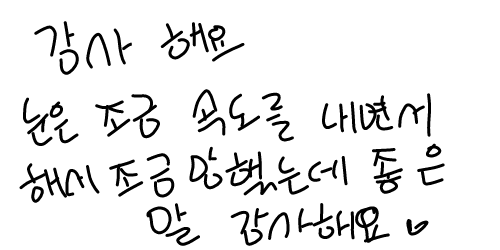 감사 해요
눈은 조금 속도를 내면서
해서 조금 망했는데 좋은
말 감사해요